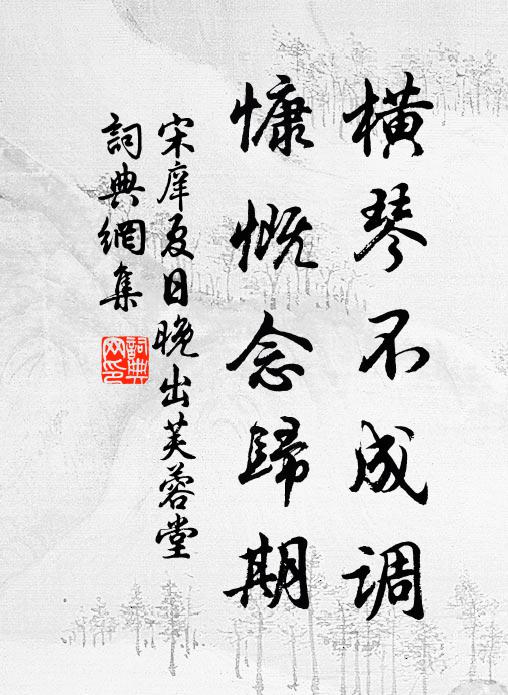 横琴不成调
慷慨念歸期
宋庠夏日晚出芙蓉堂
詞典網集
詞典网印